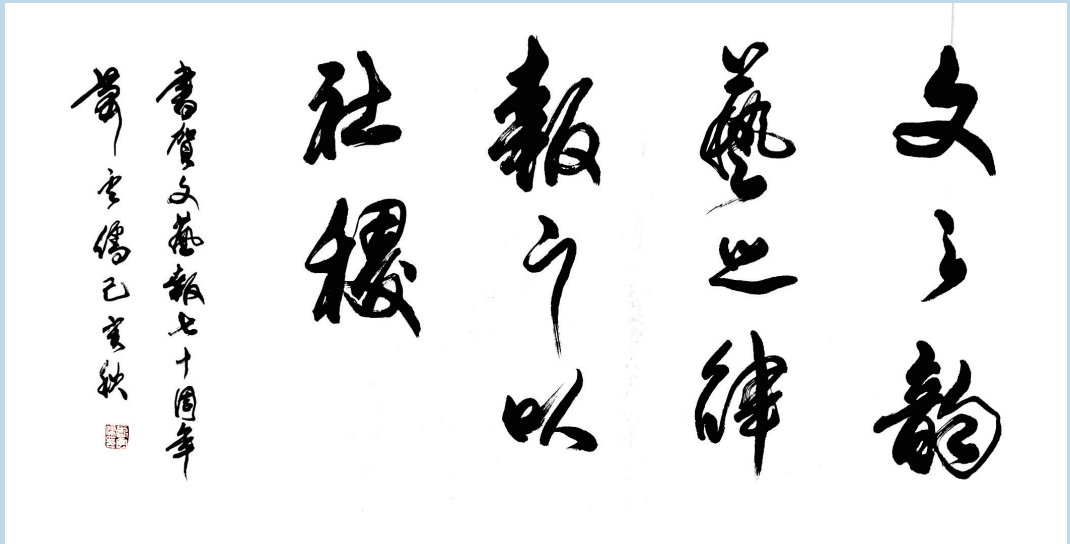 文之韻
藝之律
報之以
社稷
書賀文藝報七十周年
蕭云儒己亥秋